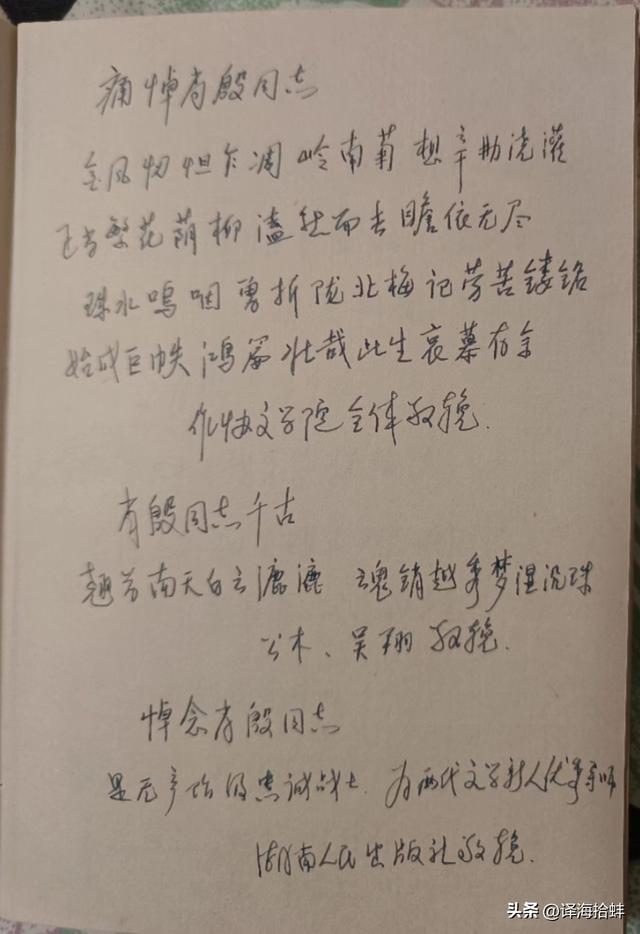 痛悼肖殷同志
金风忉怛乍凋岭南菊想辛勤浇灌
已育繁花荫柳溘然而去瞻依无尽
珠水呜咽勇折陇北梅记劳苦镂铭
始成巨帙鸿篇壮哉此生哀慕有余
作协文学院全体敬挽.
肖殷同志千古
翘首南天白云漉漉 魂销越秀梦湿沉珠
公木、吴翔敬挽.
悼念肖殷同志
是无产阶级忠诚战士.为两代文学新人优秀导师
湖南人民出版社敬挽.
头条 @译海拾蚌